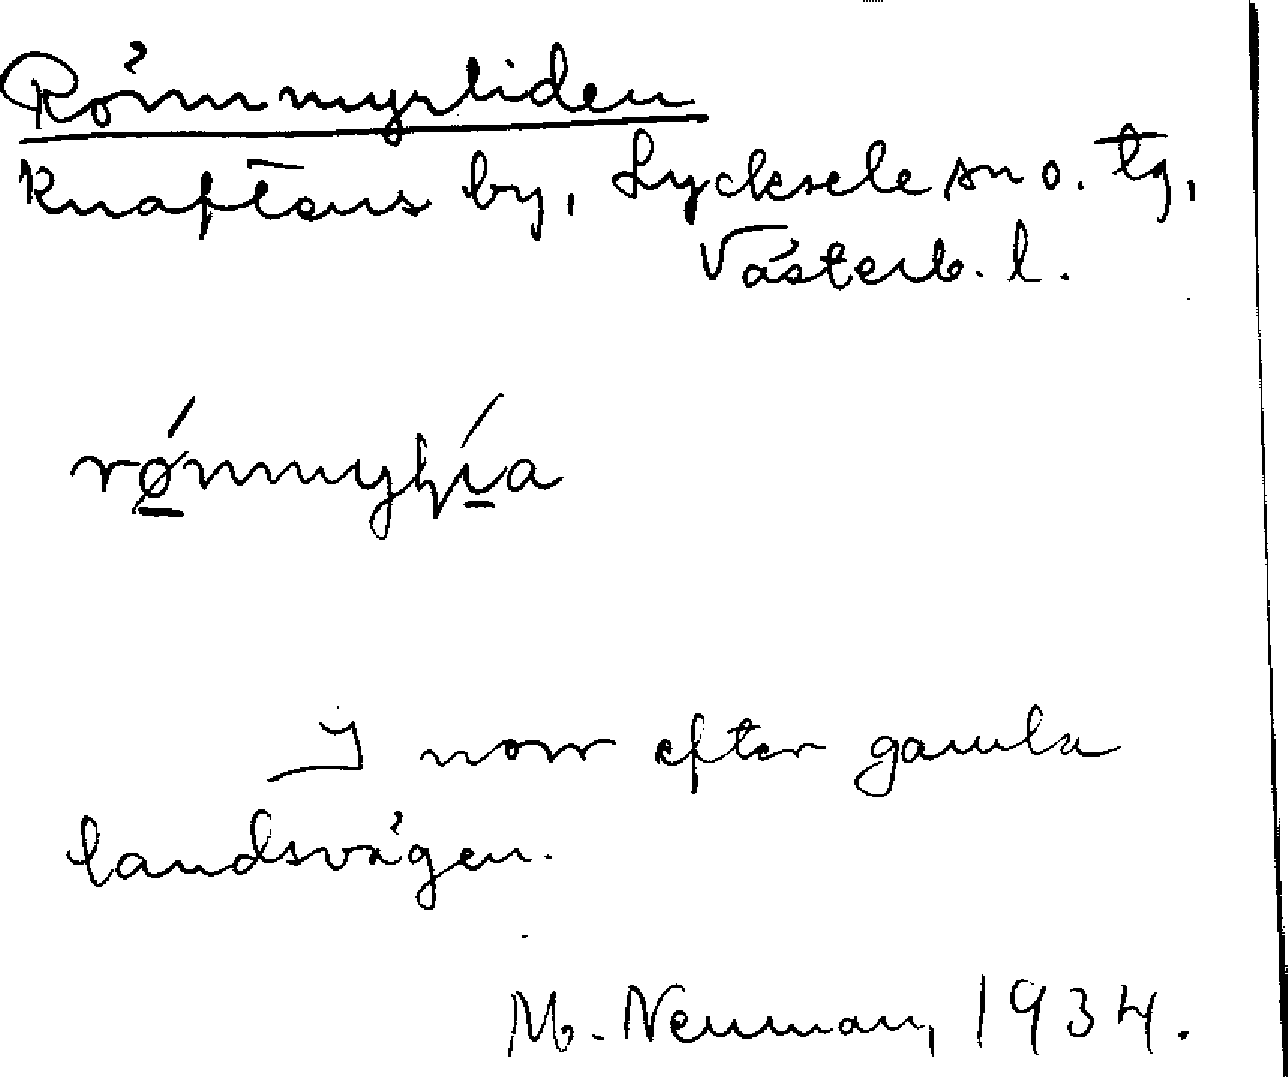 Römmyrliden
Knaftens by, Lycksele sn o. tg,
Västerb. l.
I norr efter gamla
landsvägen.
M. Neuman, 1934.